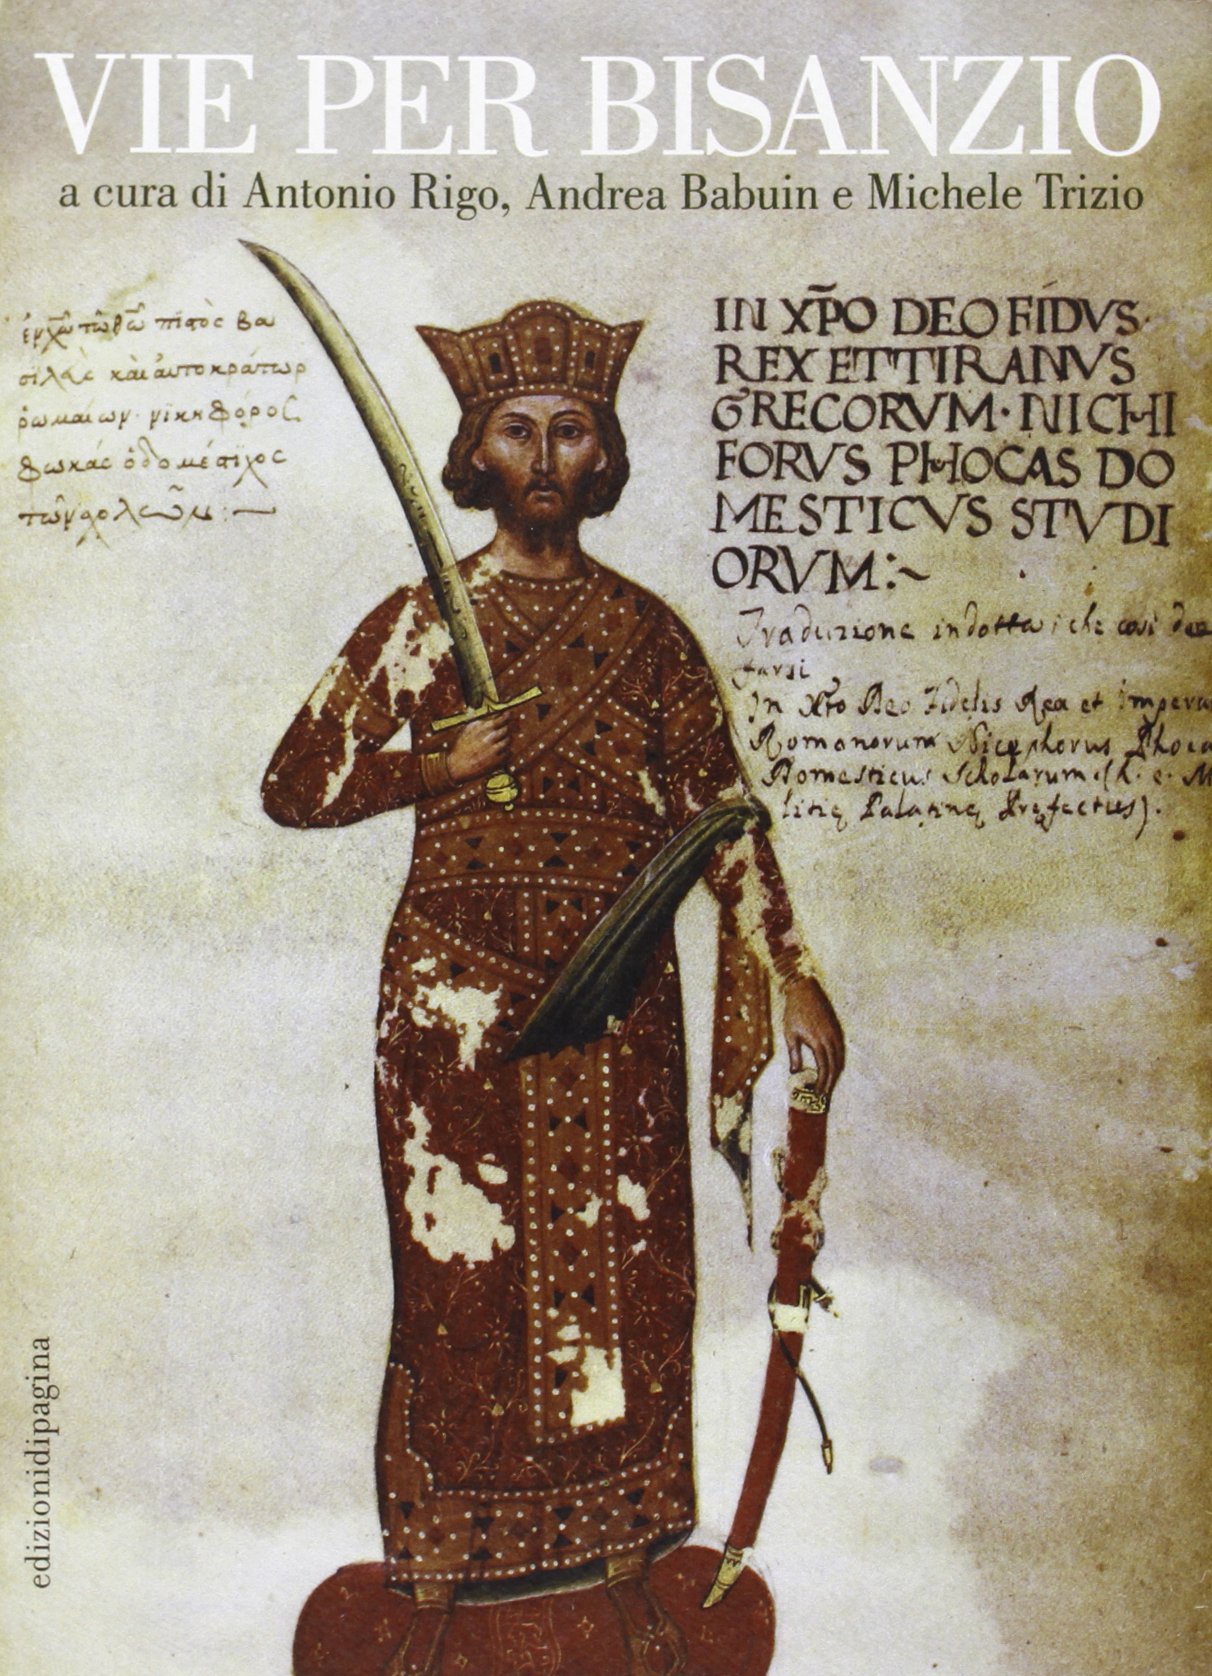 VIE PER BISANZIO
a cura di Antonio Rigo, Andrea Babuin e Michele Trizio
ἐν χῶ τῶ θῶ πιστὸς βα
σιλεὺς καὶ αυτοκράτωρ
ῥωμαίων· νικηφόρος
φωκάς ὁ δομέστιχος
τῶν σχολῶν :~
IN XP̄O DEO FIDVS·
REX ET TIRANVS
GRECORVM · NICHI
FORVS PHOCAS DO
MESTICVS STVDI
ORVM :~
Traduzione indotta; che così dee
farsi
In Xto Deo Fidelis Rex et Impera
Romanorum Nicephorus Phoca
Domesticus Scholarum (h. e. M
litię Palatinę Pręfectus).
edizionidipagina